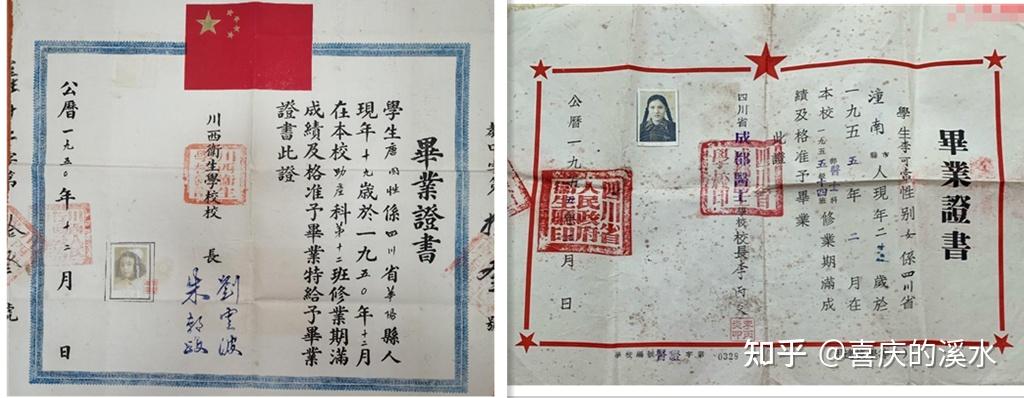 畢業證書
學生唐
係四川省華陽縣人
現年十九歲於一九五〇年十二月
在本校助產科第十二班修業期滿
成績及格准予畢業特給予畢業
證書此證
川西衛生學校校長
劉雲波
朱
公曆一九五〇年十二月 日
畢業證書
學生李可
性別女係四川省
潼南縣人現年二十
歲於
一九五五年二月在
本校
修業期滿成
績及格准予畢業
此證
四川省成都醫士學校校長李
公曆一九
月 日
四川省人民政府衛生廳印
學校編號醫證字第0329
知乎 @喜庆的溪水